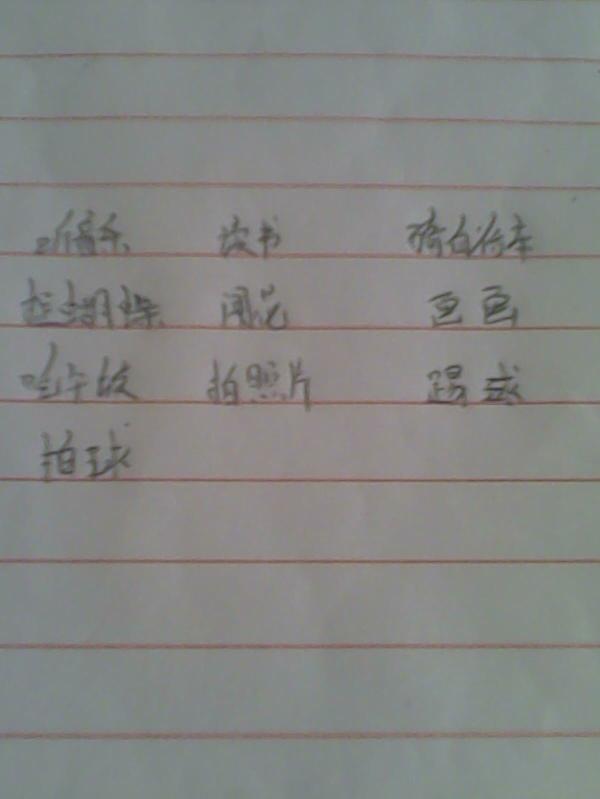 听音乐 读书 骑自行车
捉蝴蝶 闻花 画画
吃午饭 拍照片 踢球
拍球